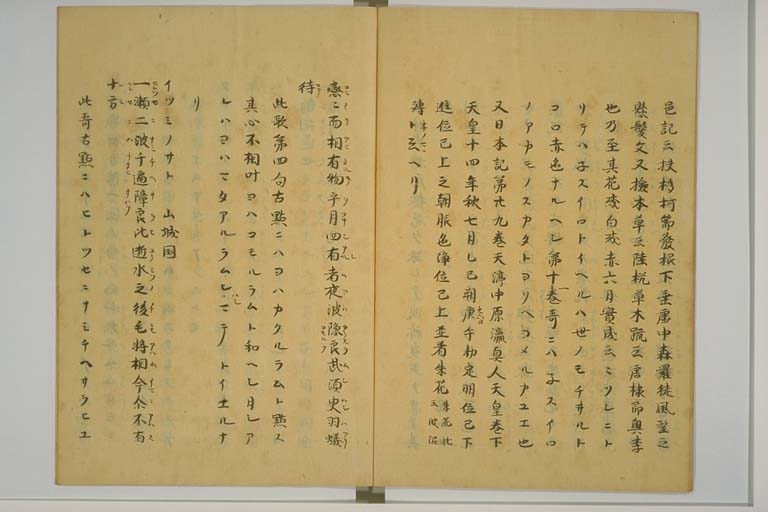 邑記云扶杉柯節發根下垂虚中森羅徒風望之
懸髪文又撿本草云陸杬草木䟽云唐棣節奥李
也乃至其花或白或赤六月實成云ミツレニト
リテハ子スイロトイヘルハ世ノモチヰルト
コロ赤色ナルヘシ第十一巻哥ニハ子スイロ
ノアカモノスカタトヨソヘヨメルカユエ也
又日本記第廿九巻天渟中原瀛真人天皇巻下
天皇十四年秋七月乙巳朔庚午勅定明位已下
進位已上之朝服色浄位已上並着朱花 朱花此云波泥
孺ト云ヘリ
戀ミ而相有物乎月四有者夜波隠良武須臾羽蟻
待
此歌第四句古點ニハヨハカクルラムト點ス
其心不相叶ヨハコモルラムト和ヘシ月シア
レハヨハマタアルラムシハシマテトイエルナ
リ
イツミノサト 山城国
一瀬二波千遍障良比逝水之後毛将相今尒不有
十方
此哥古點ニハヒトツセニナミチヘサラヒユ